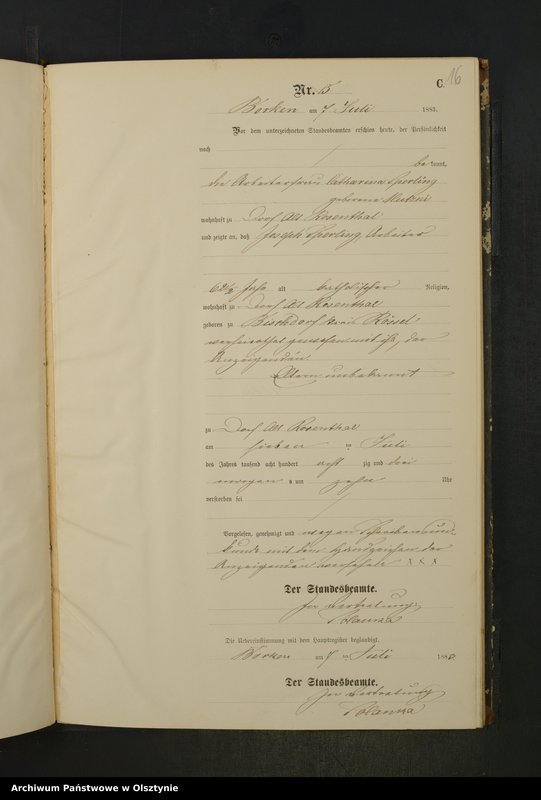 C. 16
Nr. 15
Borken am 7 Juli 1883.
Vor dem unterzeichneten Standesbeamten erschien heute, der Persönlichkeit
nach
bekannt,
die Arbeiterfrau Catharina Sperling
geborene
wohnhaft zu Dorf Alt Rosenthal
und zeigte an, daß Joseph Sperling, Arbeiter
62 1/2 Jahr alt katholischer Religion,
wohnhaft zu Dorf Alt Rosenthal
geboren zu Bischdorf Kreis Rössel
verheirathet gewesen mit ihr, der
Anzeigenden
Eltern unbekannt
zu Dorf Alt Rosenthal
am sieben ten Juli
des Jahres tausend acht hundert acht zig und drei
morgens um zehn Uhr
verstorben sei
Vorgelesen, genehmigt und wegen Schreibensun-
kunde mit dem Handzeichen der
Anzeigenden versehen X X X
Der Standesbeamte.
In Vertretung:
Die Uebereinstimmung mit dem Hauptregister beglaubigt.
Borken am 7 ten Juli 1883.
Der Standesbeamte.
In Vertretung
Archiwum Państwowe w Olsztynie